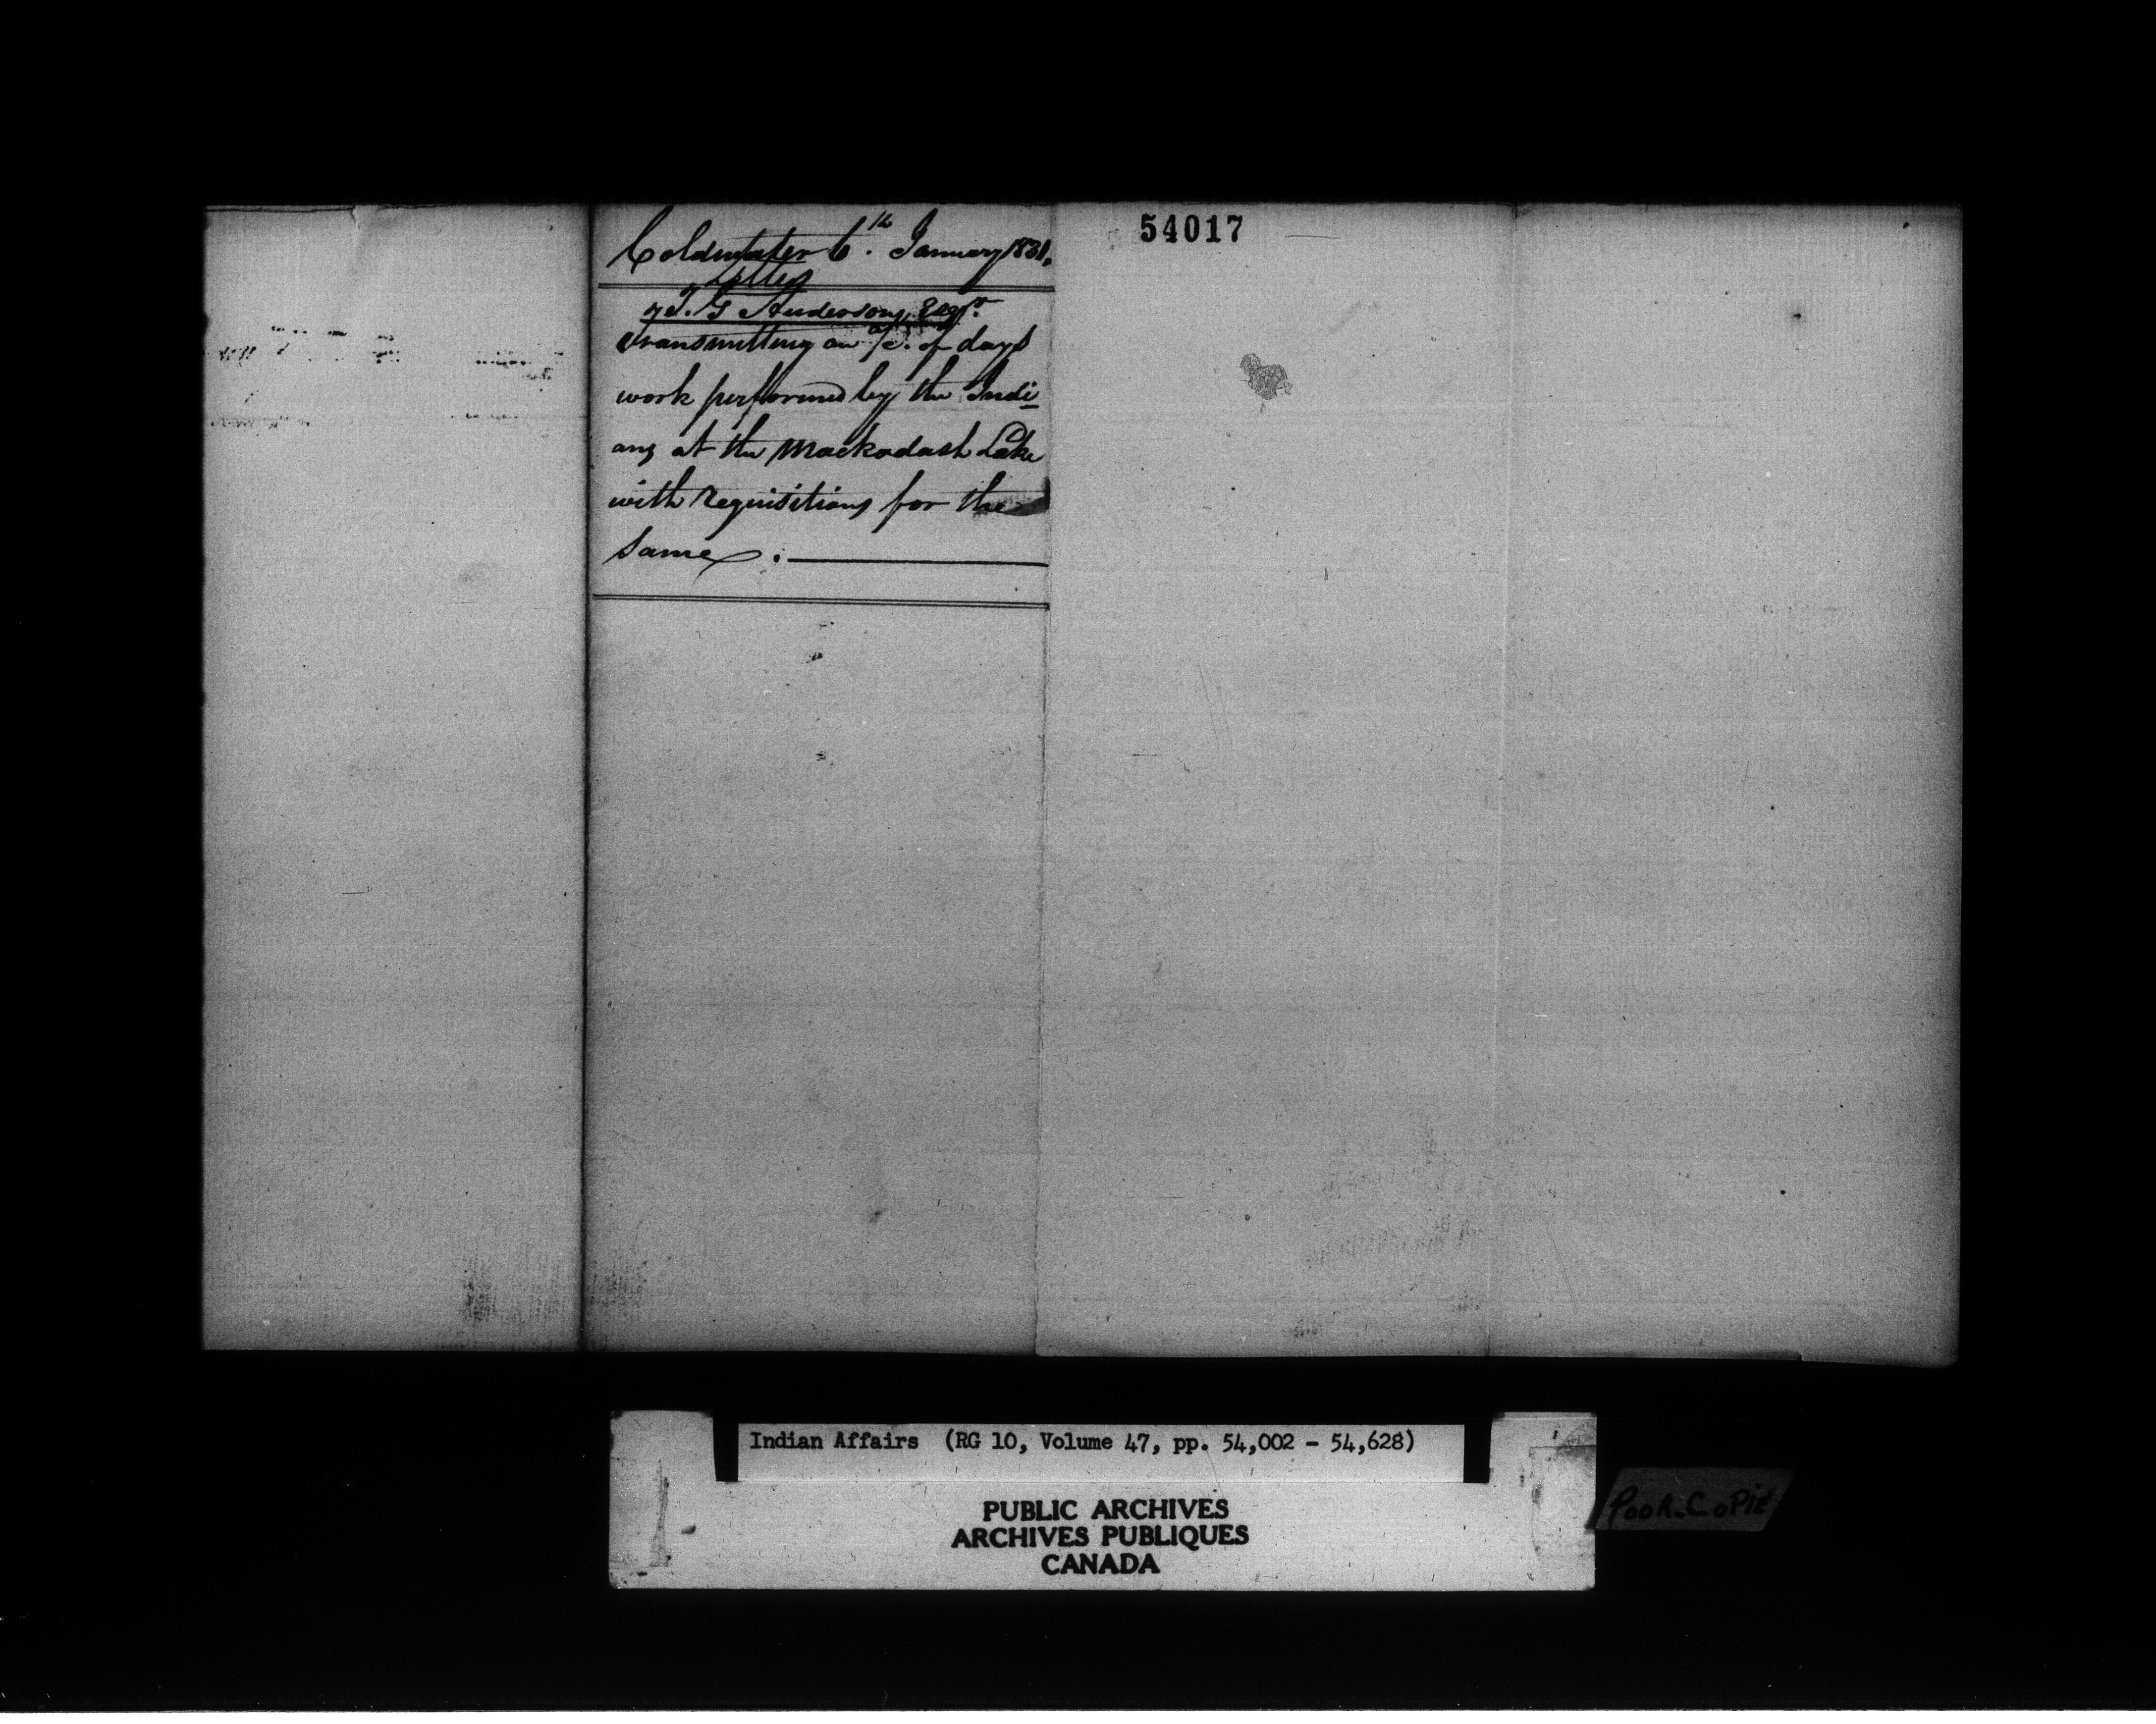 Coldwater 6th. January 1831.
Letter
T. G Anderson, Esqr.
transmitting an a/c. of days
work performed by the Indi-
ans at the Mackadash Lake
with requisitions for the
same.
54017
Indian Affairs (RG 10, Volume 47, pp. 54,002 - 54,628)
PUBLIC ARCHIVES
ARCHIVES PUBLIQUES
CANADA
POOR COPIE